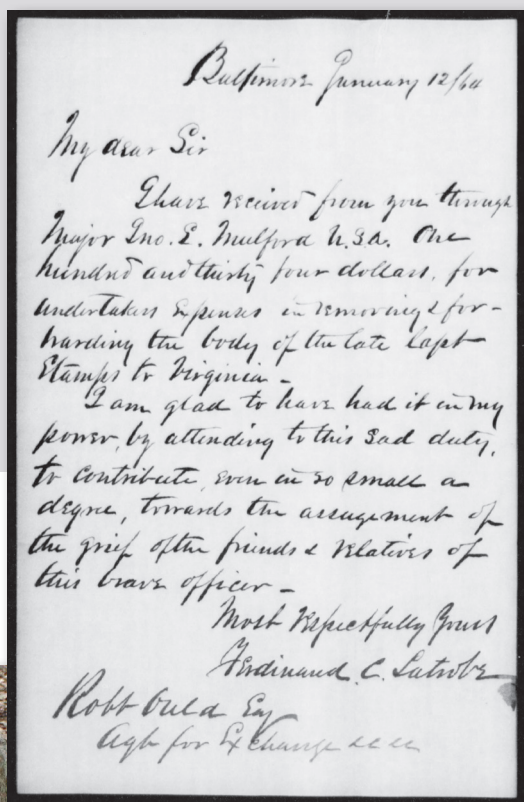 Baltimore January 12/64
My dear Sir
I have received from you through
Major Jno. E. Mulford U.S.A. One
hundred and thirty four dollars, for
undertakers expenses in removing & for-
warding the body of the late Capt
Stamps to Virginia -
I am glad to have had it in my
power, by attending to this sad duty,
to contribute, even in so small a
degree, towards the assuagement of
the grief of the friends & relatives of
this brave officer -
Most respectfully Yours
Ferdinand. C. Latrobe
Robt Ould Esq
Agt for Exchange